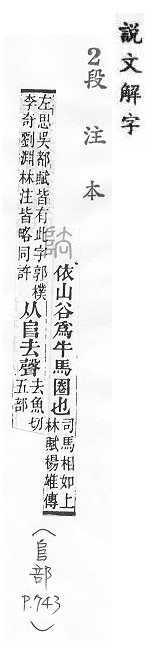 說文解字
2段注本
阹
依山谷爲牛馬圈也
司馬相如上
林賦楊雄傳
左思吳都賦皆有此字郭樸
李奇劉淵林注皆略同許
从𨸏去聲
去魚切
五部
(𨸏部 P.743)